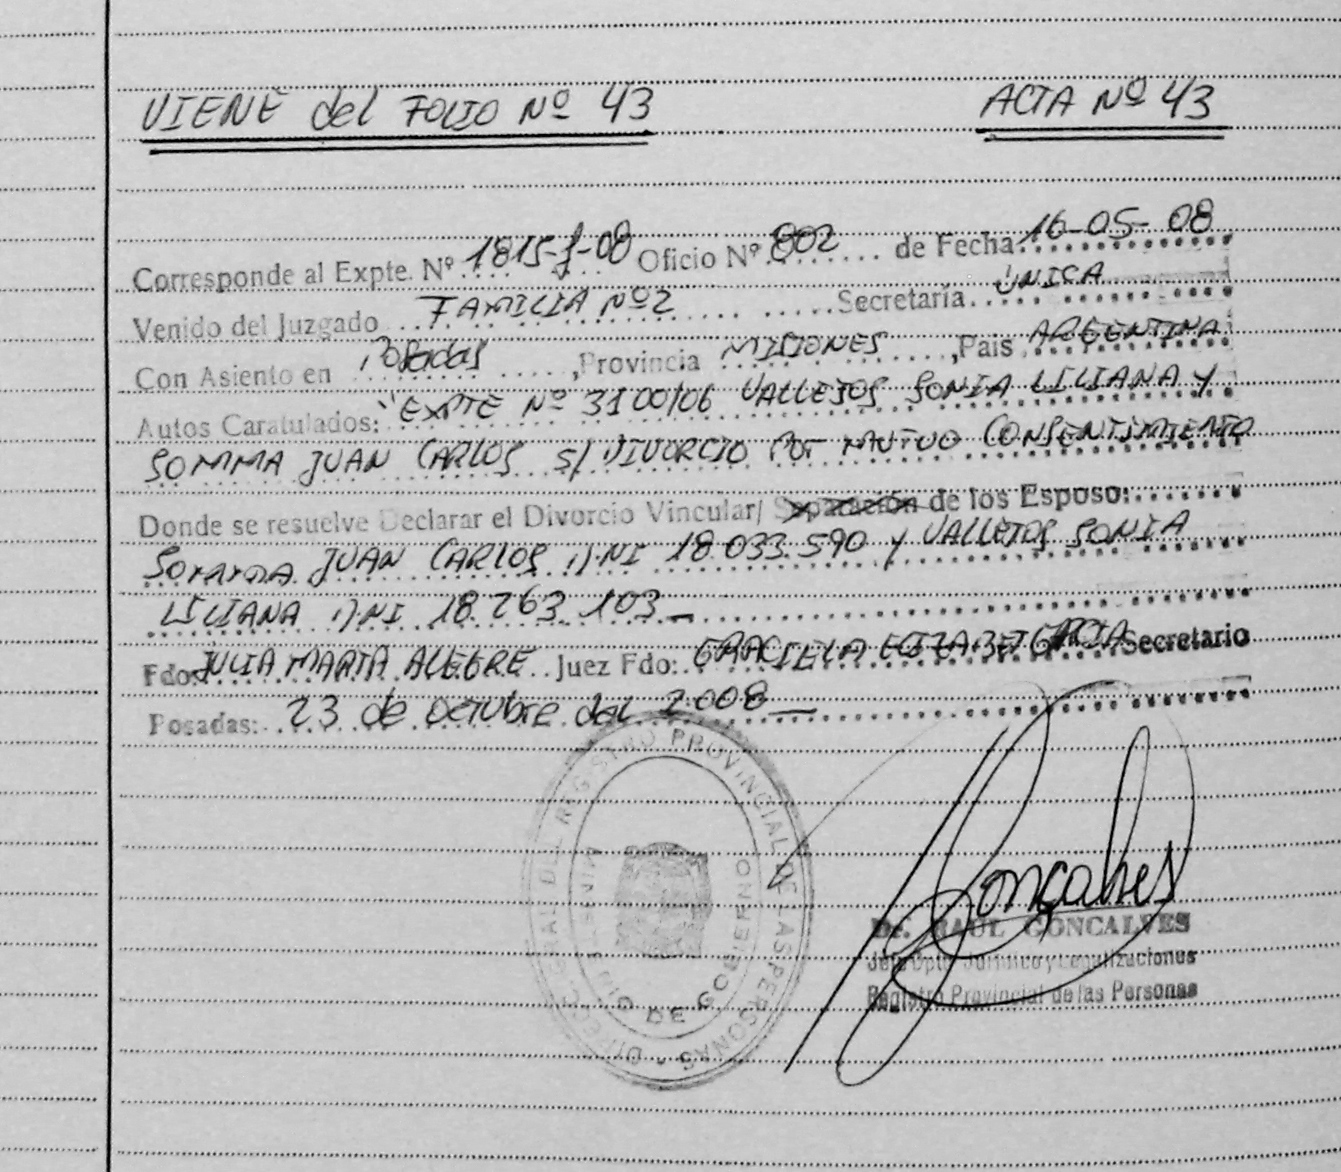 VIENE del FOLIO Nº 43
ACTA Nº 43
Corresponde al Expte. Nº 1815-J-08 Oficio Nº 802 de Fecha 16-05-08
Venido del Juzgado FAMILIA Nº2 Secretaría UNICA
Con Asiento en Posadas, Provincia MISIONES, País ARGENTINA
Autos Caratulados: "EXPTE Nº 3100/06 VALLEJOS SONIA LILIANA Y
SOMMA JUAN CARLOS S/ DIVORCIO POR MUTUO CONSENTIMIENTO
Donde se resuelve Declarar el Divorcio Vincular/ Separación de los Esposo:
SOMMA JUAN CARLOS DNI 18.033.590 Y VALLEJOS SONIA
LILIANA DNI 18.263.103_
Fdo: JULIA MARTA ALEGRE Juez Fdo: GRACIELA ELIZABET GARCIA Secretario
Posadas: 23 de octubre del 2008_
DIRECC. GRAL DEL REGISTRO PROVINCIAL DE LAS PERSONAS
MINISTERIO DE GOBIERNO
Gonçalves
Dr. RAUL GONCALVES
Jefe Dpto. Jurídico y Legalizaciones
Registro Provincial de las Personas